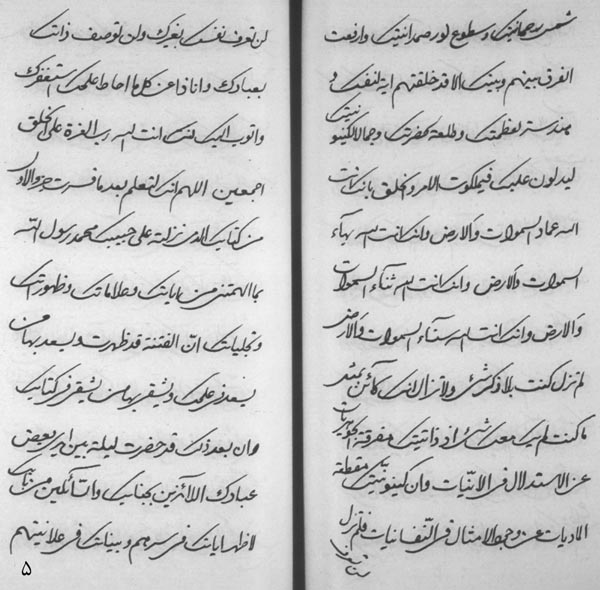 شمس رحمانيتك وسطوع نور صمدانيتك وارفعت
الفرق بينهم وبينك الا قد خلقتهم اية لنفسك و
مندسة لعظمتك وطلعة لحضرتك وجمالا لكينونيتك
ليدلون عليك في ملكوت الامر والخلق بانك انت
الله عماد السموات والارض وانك انت الله بهآء
السموات والارض وانك انت الله ثنآء السموات
والارض وانك انت الله سنآء السموات والارض
لم تزل كنت بلا ذكر شئ ولا تزال انك كآئن بمثل
ما كنت لم يك معك شئ اذ ذاتيتك مفرقة الجوهريات
عن الاستدلال في الانيات وان كينونيتك مقطعة
الماديات عن وجه الامثال في النفسانيات فلم تزل
لن تعرف نفسك بغيرك ولن توصف ذاتك
بعبادك وانا ذا عن كلما احاط علمك استغفرك
واتوب اليك لنفسك انت الله رب العزة على الخلق
اجمعين اللهم انك لتعلم بعد ما فسرت جزء الاول
من كتابك الذي نزلته على حبيبك محمد رسول الله
بما الهمتني من اياتك وعلاماتك وظهوراتك
وتجلياتك ان الفتنة قد ظهرت ويسعد بها من
يسعد في علمك ويشقى بها من يشقى في كتابك
وان بعد ذلك قد حضرت ليلة بين ايدي بعض
عبادك اللائذين بجنابك والسآئلين من بابك
لاظهار اياتك في سرهم وبيناتك في علانيتهم
۵